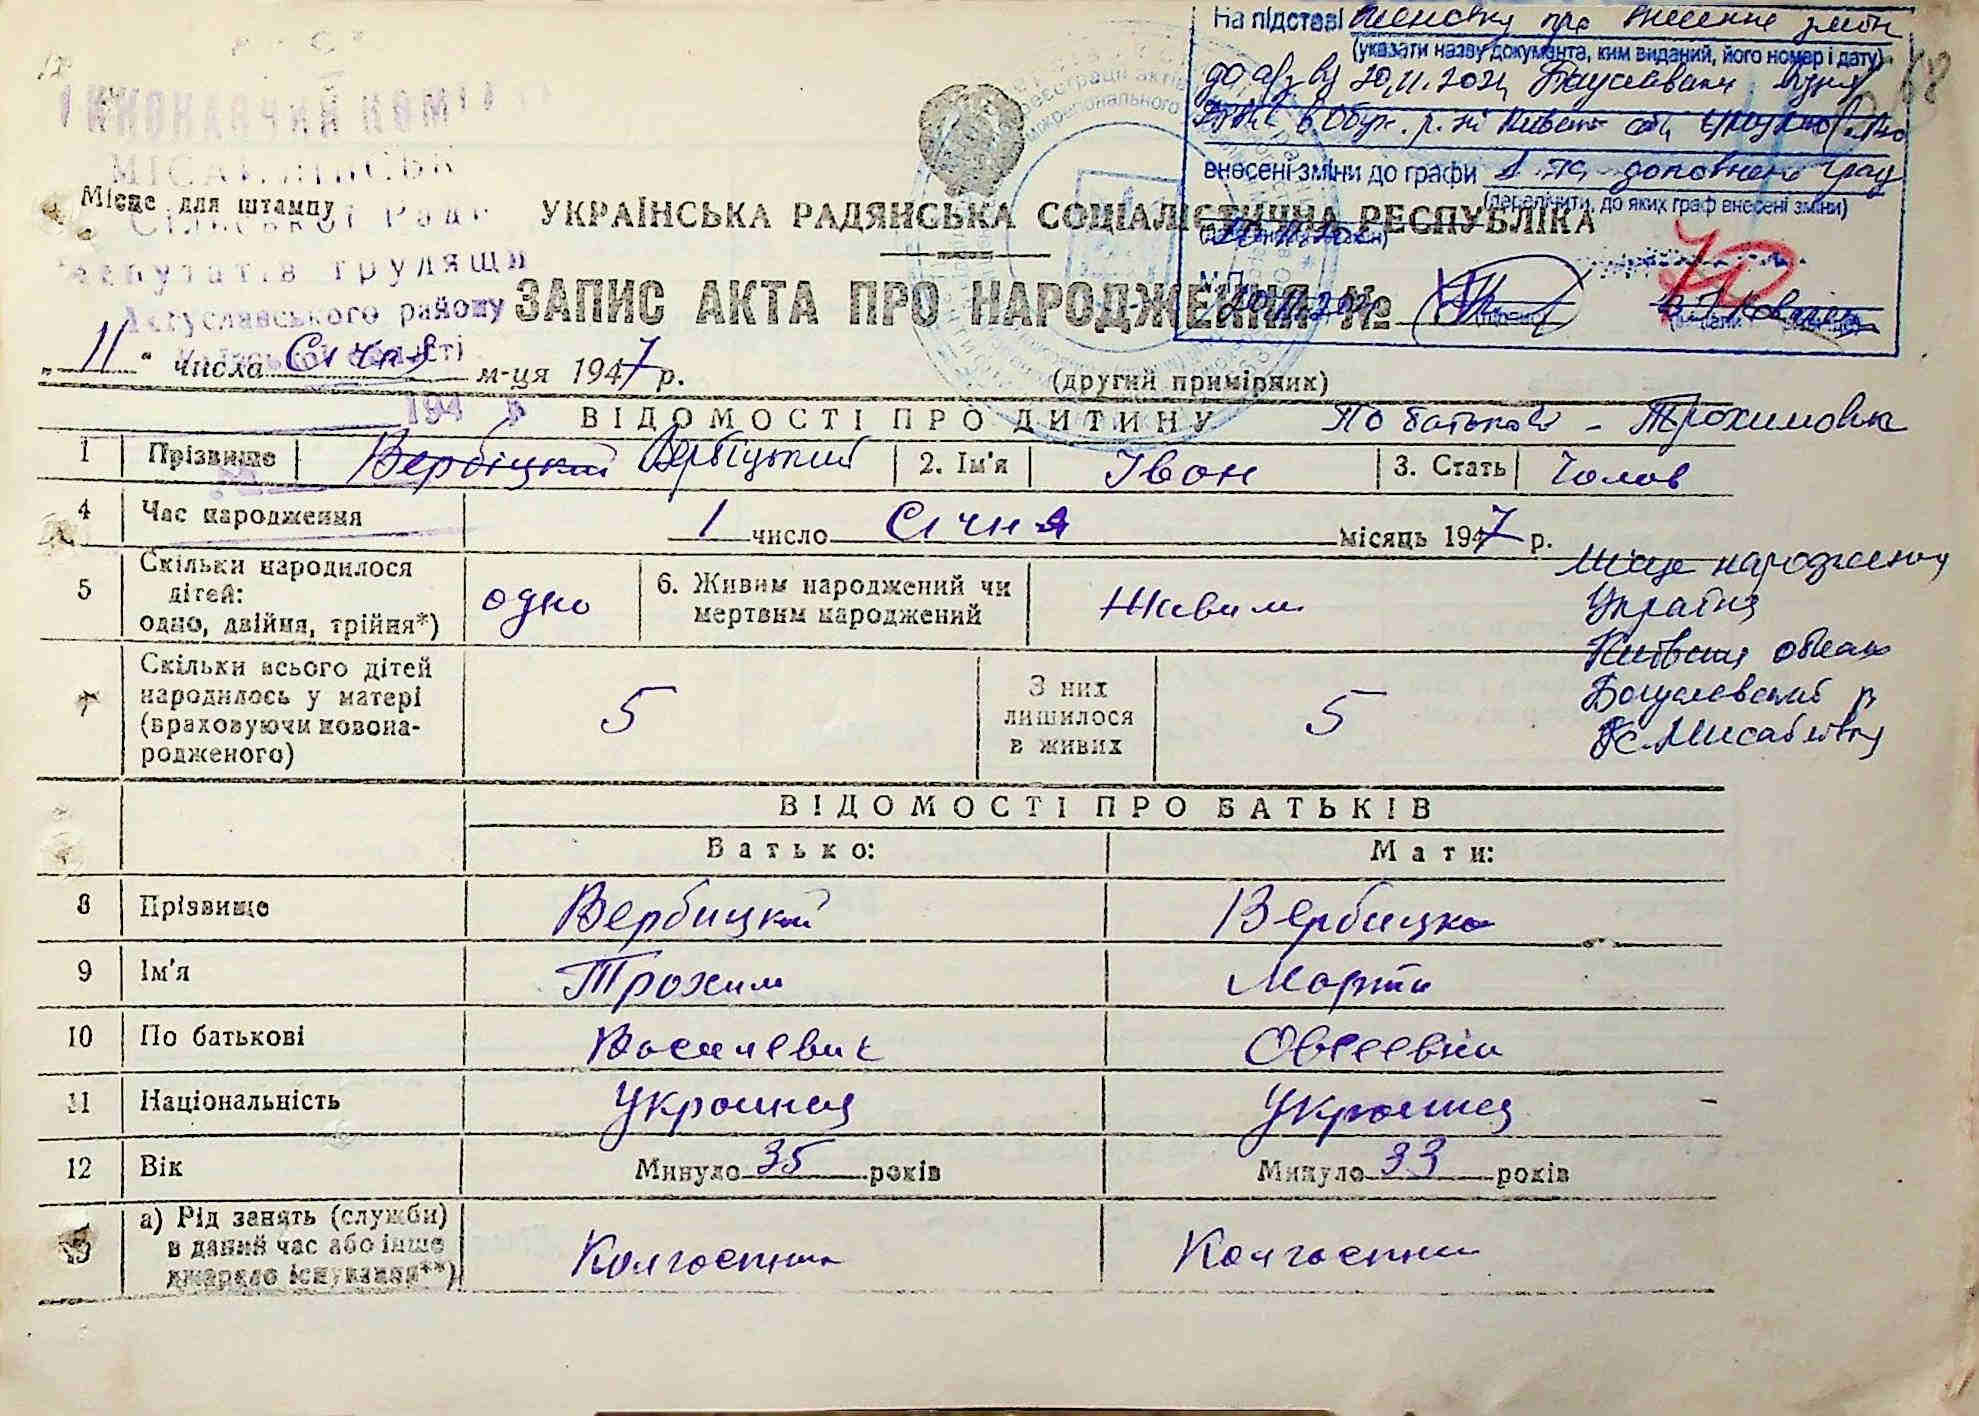 На підставі висновку про внесення змін
(указати назву документа, ким виданий, його номер і дату)
до а/з від 20.11.2024 Богуславським
внесені зміни до графи 1 та доповнено граф
(перелічити, до яких граф внесені зміни)
М.П.
ВИКОНАВЧИЙ КОМ
Сільської Ради
депутатів трудящи
Богуславського району
Київської області
194 р
Місце для штампу
УКРАЇНСЬКА РАДЯНСЬКА СОЦІАЛІСТИЧНА РЕСПУБЛІКА
ЗАПИС АКТА ПРО НАРОДЖЕННЯ №
„11“ числа Січня м-ця 1947 р.
(другий примірник)
ВІДОМОСТІ ПРО ДИТИНУ
По батькові - Трохимович
1 Прізвище Вербицкий Вербіцький 2. Ім'я Іван 3. Стать Чолов
4 Час народження 1 число Січня місяць 1947 р.
5 Скільки народилося дітей: одно, двійня, трійня*) одно 6. Живим народжений чи мертвим народжений Живим
Місце народження
Україна
Київська область
Богуславський р
с. Мисайлівка
7 Скільки всього дітей народилось у матері (враховуючи новонародженого) 5 З них лишилося в живих 5
ВІДОМОСТІ ПРО БАТЬКІВ
Батько: Мати:
8 Прізвище Вербицкий Вербицка
9 Ім'я Трохим Марта
10 По батькові Василевич Овсеевна
11 Національність Украинец Украинец
12 Вік Минуло 35 років Минуло 33 років
13 а) Рід занять (служби) в даний час або інше джерело існування**) Колгоспник Колгоспни